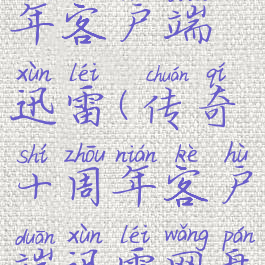 年客户端
xùn léi chuán qí
迅雷(传奇
shí zhōu nián kè hù
十周年客户
duān xùn léi wǎng pán
端迅雷网盘